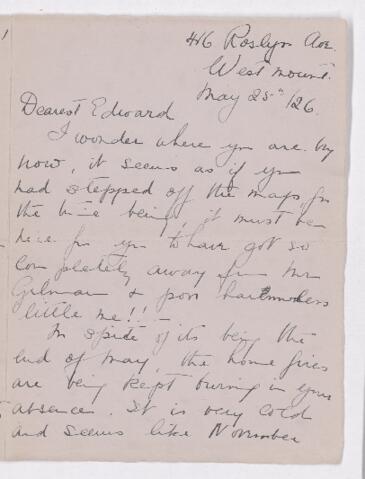 416 Roslyn Ave.
Westmount.
May 25th /26.
Dearest Edward
I wonder where you are by
now, it seems as if you
had stepped off the map, for
the time being, it must be
nice for you to have got so
completely away from Mr
Gilman & poor
little me!! —
In spite of its being the
end of May, the home fires
are being kept burning in your
absence. It is very cold
and seems like November